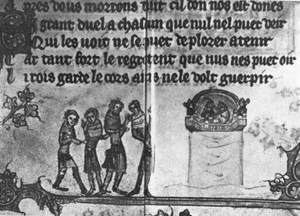 pres vous morrons tuit cil don nos est dones
grant duel a chascun que nul nel puet veir
Qui les voit ne se puet de plorer atenir
ar tant fort le regretent que nus nes puet oir
trois garde le cors ains ne le volt guerpir